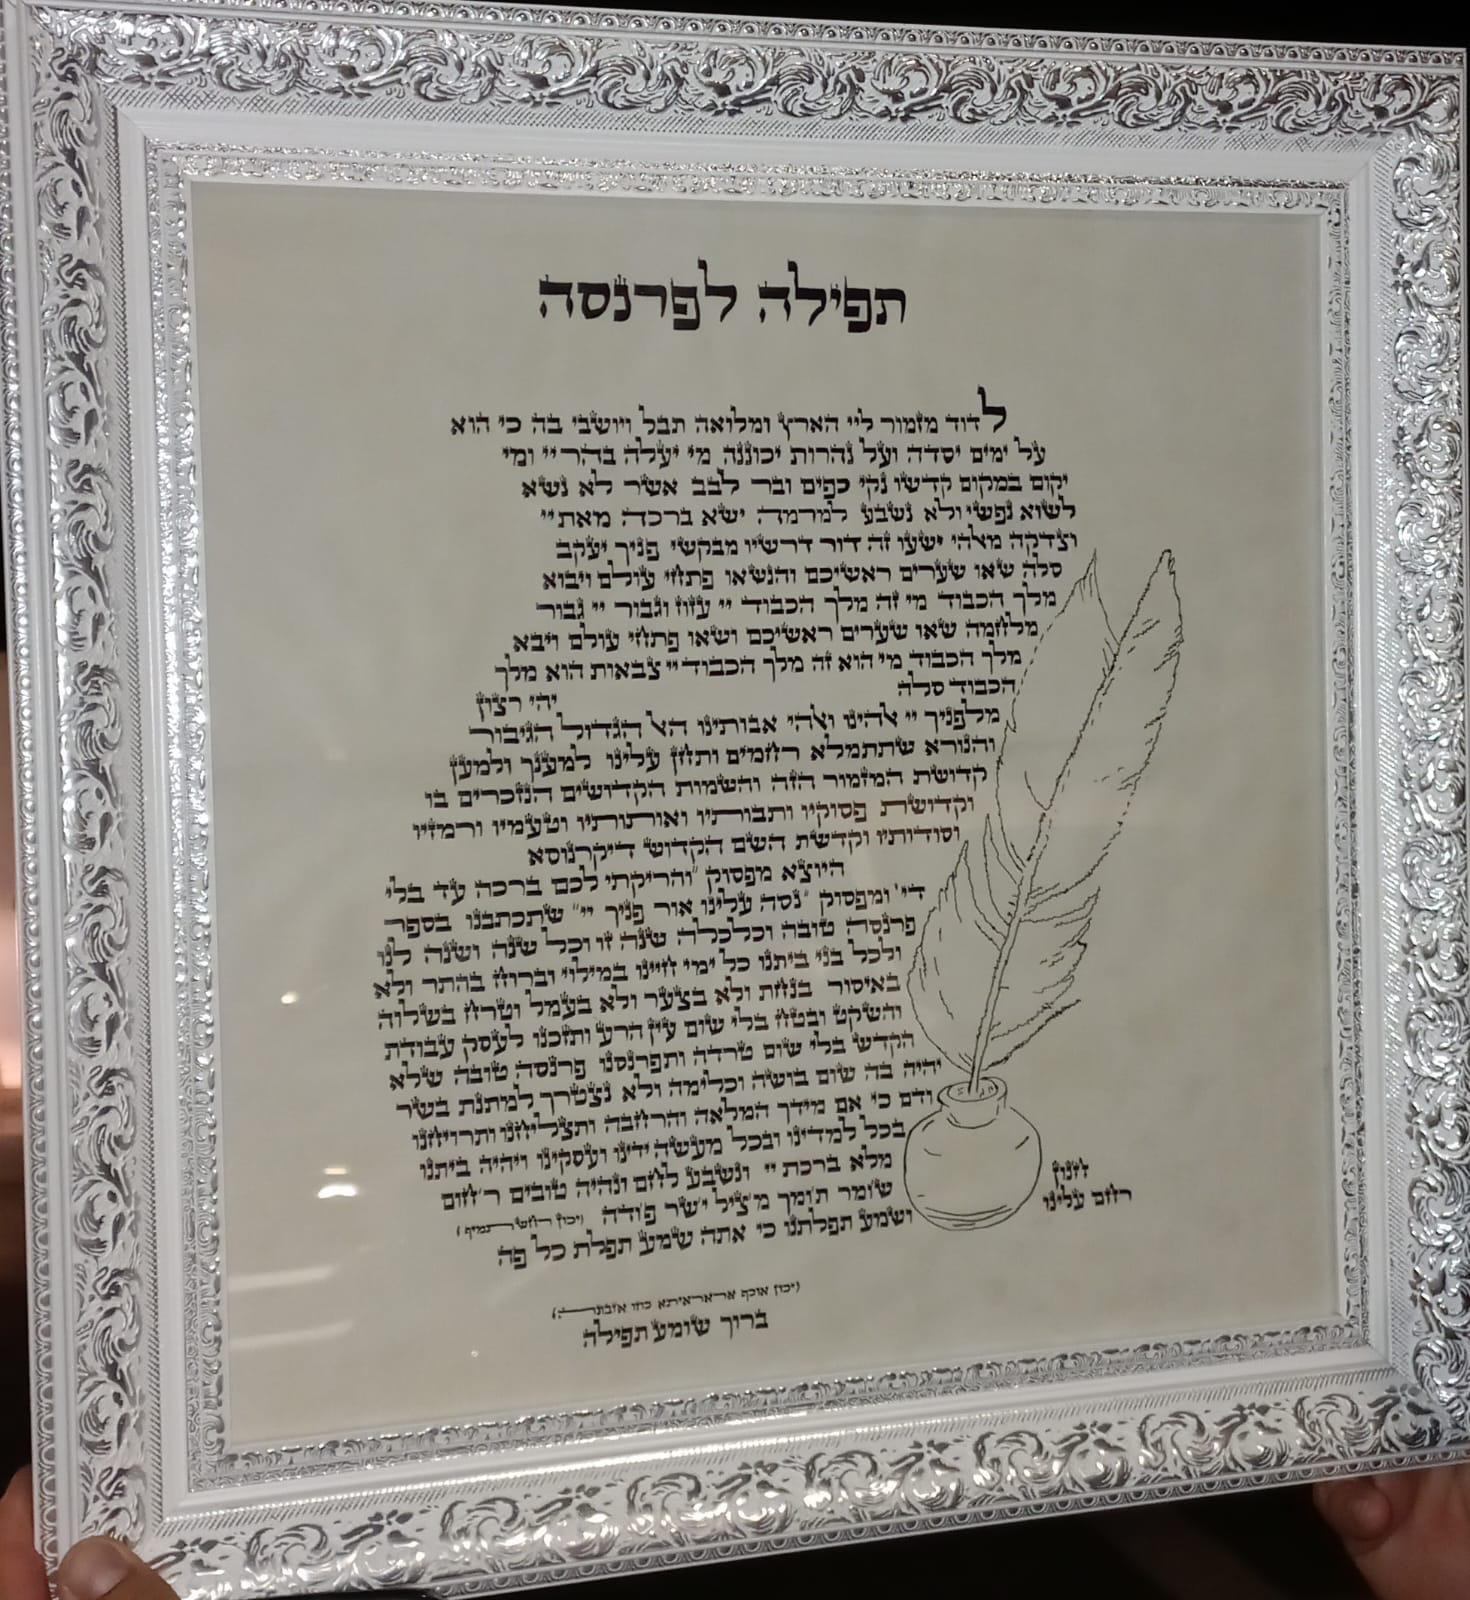 תפילה לפרנסה
לדוד מזמור ליי הארץ ומלואה תבל ויושבי בה כי הוא
על ימים יסדה ועל נהרות יכוננה מי יעלה בהר יי ומי
יקום במקום קדשו נקי כפים ובר לבב אשר לא נשא
לשוא נפשי ולא נשבע למרמה ישא ברכה מאת יי
וצדקה מאלהי ישעו זה דור דרשיו מבקשי פניך יעקב
סלה שאו שערים ראשיכם והנשאו פתחי עולם ויבוא
מלך הכבוד מי זה מלך הכבוד יי עזוז וגבור יי גבור
מלחמה שאו שערים ראשיכם ושאו פתחי עולם ויבא
מלך הכבוד מי הוא זה מלך הכבוד יי צבאות הוא מלך
הכבוד סלה יהי רצון
מלפניך יי אלהינו ואלהי אבותינו האל הגדול הגיבור
והנורא שתתמלא רחמים ותחן עלינו למענך ולמען
קדושת המזמור הזה והשמות הקדושים הנזכרים בו
וקדושת פסוקיו ותבותיו ואותותיו וטעמיו ורמזיו
וסודותיו וקדשת השם הקדוש דיקרנוסא
היוצא מפסוק "והריקתי לכם ברכה עד בלי
די" ומפסוק "נסה עלינו אור פניך יי" שתכתבנו בספר
פרנסה טובה וכלכלה שנה זו וכל שנה ושנה לנו
ולכל בני ביתנו כל ימי חיינו במילוי וברוח בהתר ולא
באיסור בנחת ולא בצער ולא בעמל וטרח בשלוה
והשקט ובטח בלי שום עין הרע ותזכנו לעסק עבודת
הקדש בלי שום טרדה ותפרנסנו פרנסה טובה שלא
יהיה בה שום בושה וכלימה ולא נצטרך למתנת בשר
ודם כי אם מידך המלאה והרחבה ותצליחנו ותרויחנו
בכל למדינו ובכל מעשה ידינו ועסקינו ויהיה ביתנו
מלא ברכת יי ונשבע לחם ונהיה טובים ר׳חום
ש׳ומר ת׳ומך מ׳ציל י׳שר פ׳ודה (יכון רחש תמיף)
ושמע תפלתנו כי אתה שמע תפלת כל פה
(יכון אוכף אראריתא כחו
ברוך שומע תפילה
חנון
רחם עלינו